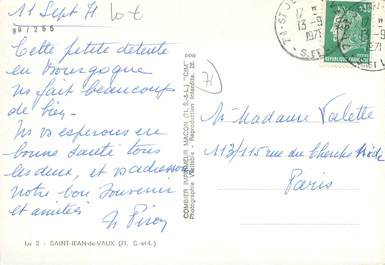 11 Sept 71
99/255
Cette petite detente
en Bourgogne
ns fait beaucoup
de bien.
Ns vs esperons en
bonne santé tous
les deux, et vs adressons
notre bon souvenir
et amitiés
Lo 2 - SAINT-JEAN-de-VAUX (71. S.-et-L.)
COMBIER IMPRIMEUR MACON (71. S.-&-L.) "CIM"
Photographie Véritable - Reproduction Interdite
71
13-9
1971
REPUBLIQUE FRANÇAISE
Mr Madame Valette
113/115 rue du Cherche Midi
Paris